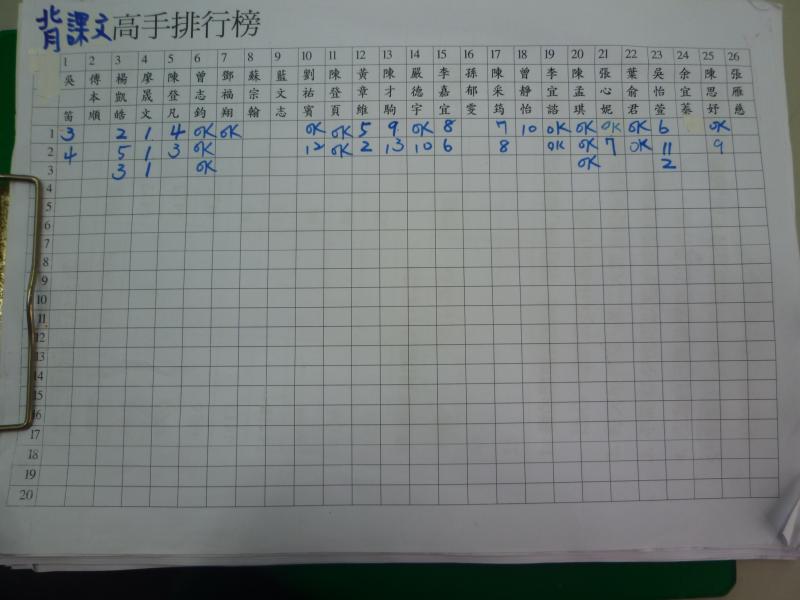 背課文高手排行榜
1 2 3 4 5 6 7 8 9 10 11 12 13 14 15 16 17 18 19 20 21 22 23 24 25 26
吳笛 傅本順 楊凱皓 廖晟文 陳登凡 曾志鈞 鄧福翔 蘇宗翰 藍文志 劉祐賓 陳登頁 黃章維 陳才駒 嚴德宇 李嘉宜 孫郁雯 陳采筠 曾靜怡 李宜諮 陳孟琪 張心妮 葉俞君 吳怡萱 余宜蓁 陳思妤 張雁慈
1 3 2 1 4 OK OK OK OK 5 9 OK 8 7 10 OK OK OK OK 6 OK
2 4 5 1 3 OK 12 OK 2 13 10 6 8 OK OK 7 OK 11 9
3 3 1 OK OK 2
4
5
6
7
8
9
10
11
12
13
14
15
16
17
18
19
20